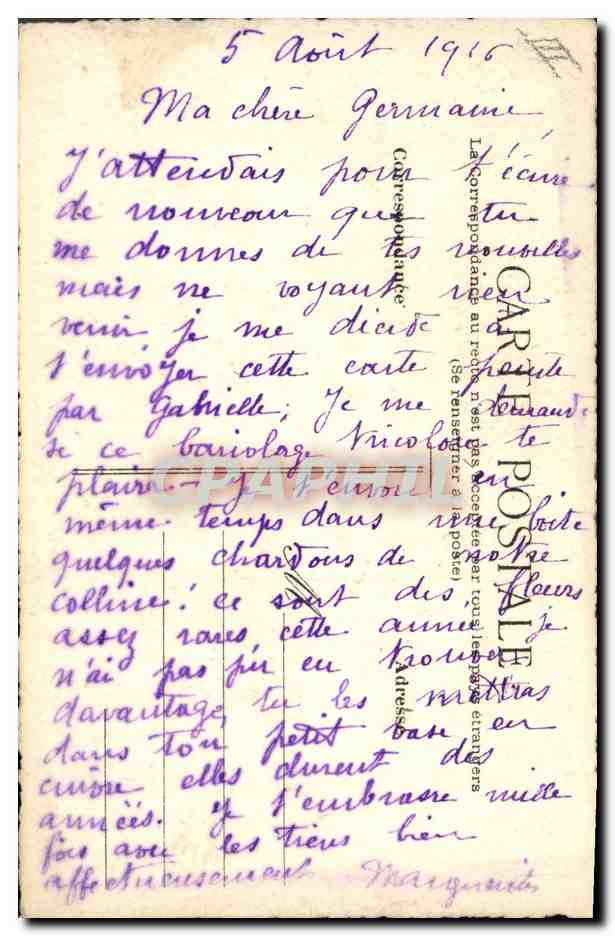 5 Août 1916
III
Ma chère Germaine
J'attendais pour t'écrire
de nouveau que tu
me donnes de tes nouvelles
mais ne voyant rien
venir je me décide à
t'envoyer cette carte peinte
par Gabrielle, Je me demande
si ce bariolage tricolore te
plaira - Je t'envoie en
même temps dans une boite
quelques chardons de notre
colline! ce sont des fleurs
assez rares cette année je
n'ai pas pu en trouver
davantage, tu les mettras
dans ton petit vase en
cuivre elles durent des
années. Je t'embrasse mille
fois avec les tiens bien
affectueusement Marguerite
CARTE POSTALE
La Correspondance au recto n'est pas acceptée par tous les pays étrangers
(Se renseigner à la poste)
Correspondance
Adresse
M
CPAPHIL